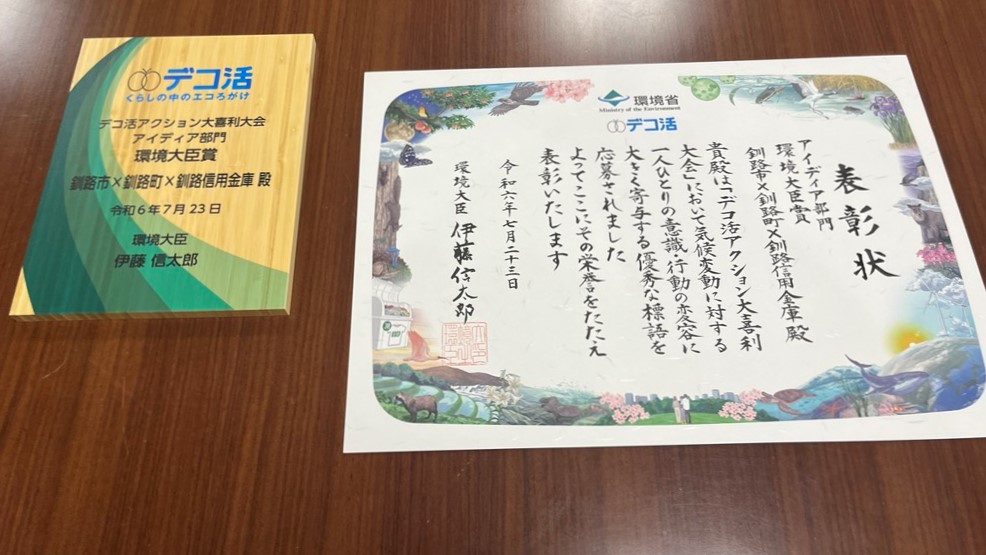 デコ活
くらしの中のエコろがけ
デコ活アクション大喜利大会
アイディア部門
環境大臣賞
釧路市×釧路町×釧路信用金庫 殿
令和6年7月23日
環境大臣
伊藤 信太郎
環境省
Ministry of the Environment
デコ活
表彰状
アイディア部門
環境大臣賞
釧路市×釧路町×釧路信用金庫 殿
貴殿は「デコ活アクション大喜利
大会」において気候変動に対する
一人ひとりの意識・行動の変容に
大きく寄与する優秀な標語を
応募されました
よってここにその栄誉をたたえ
表彰いたします
令和六年七月二十三日
環境大臣 伊藤信太郎